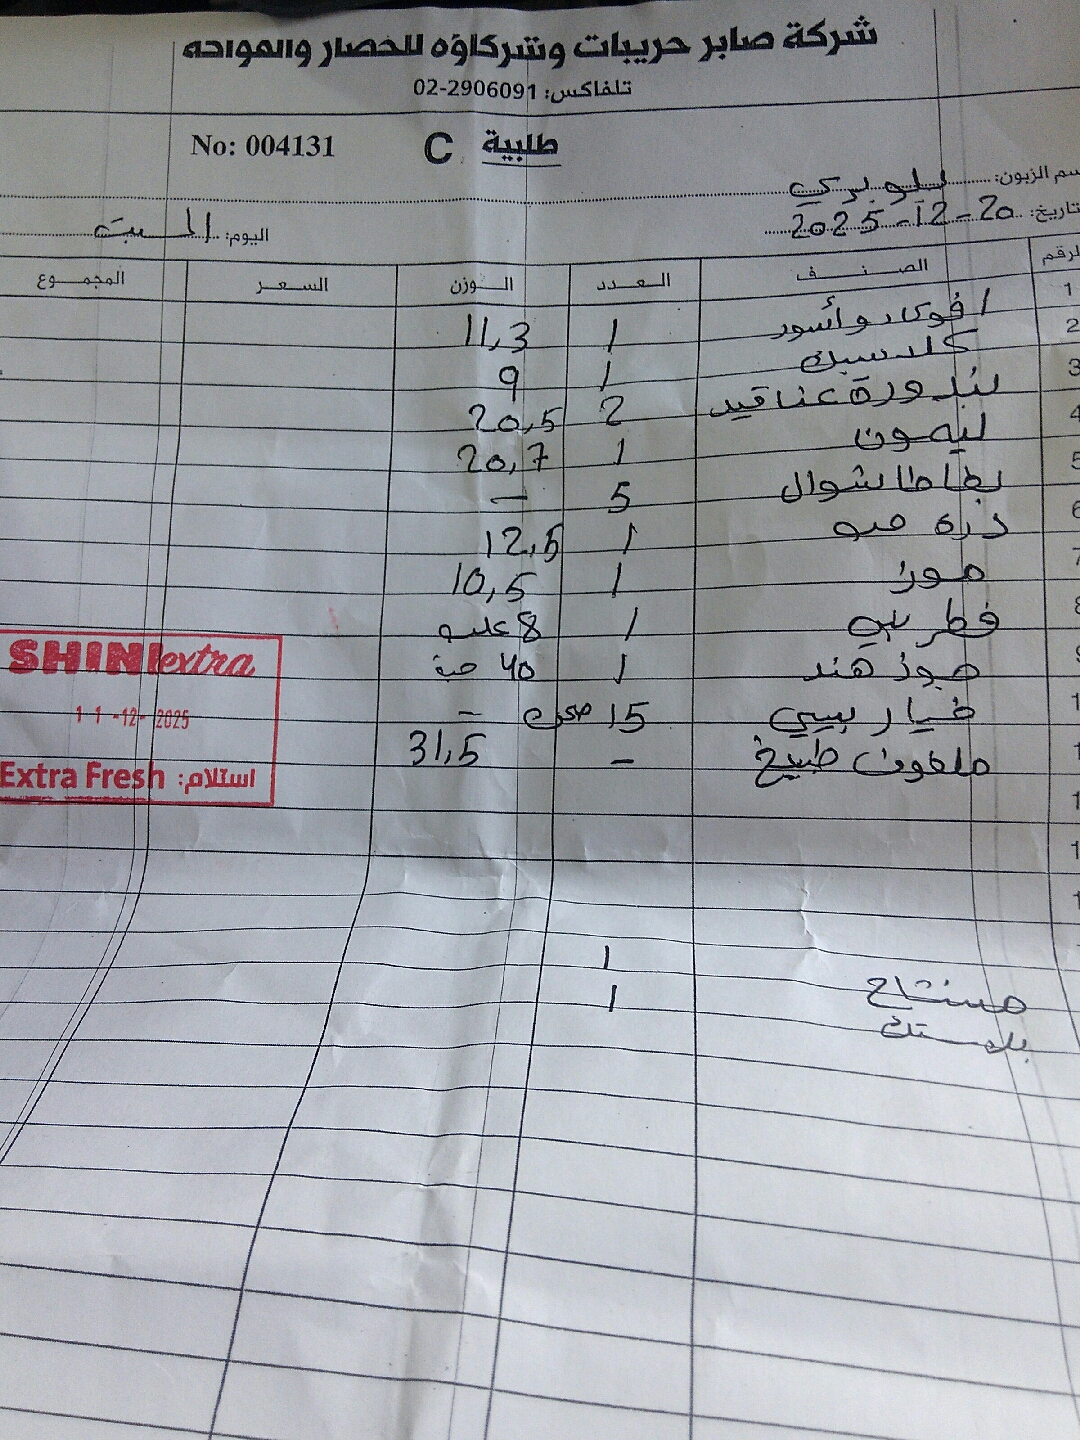 شركة صابر حريبات وشركاؤه للخضار والفواكه
تلفاكس: 02-2906091
No: 004131 C طلبية
سم الزبون: بلو بري
تاريخ: 20-12-2025 اليوم: السبت
لرقم الصنف العدد الوزن السعر المجموع
1 افوكادو أسود 1 11,3
2 كلاسيك 1 9
3 بندورة عناقيد 2 20,5
4 ليمون 1 20,7
5 بطاطا شوال 5 -
6 ذره حبه 1 12,5
7 موز 1 10,5
8 فطر 1 8 علبه
9 جوز هند 1 40 حبة
1 خيار بيبي 15 صحن -
1 ملفوف طبيخ - 31,5
1
1
1
SHINI extra
11-12-2025
Extra Fresh استلام:
1
مشتاح 1
بلاستك